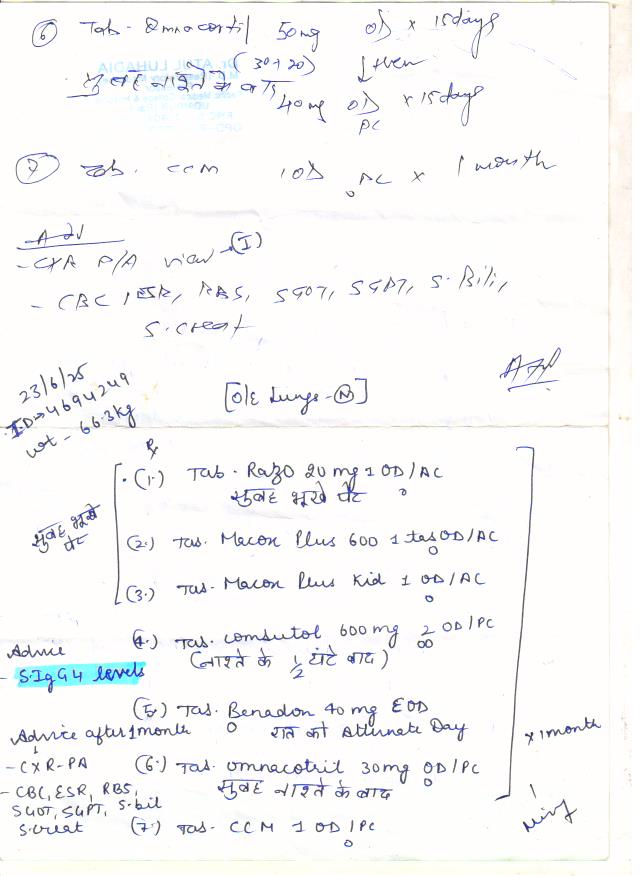 (6) Tab - Omnacortil 50mg OD x 15days
(30+20) ↓ then
सुबह नाश्ते के बाद 40mg OD x 15days
PC
DR. ATUL LUHADIA
(7) Tab. CCM 1 OD PC x 1 month
Adv
- CXR P/A view → (I)
- CBC, ESR, RBS, SGOT, SGPT, S. Bili,
S. creat
23/6/25
ID → 4694249
wt - 66.3kg
[O/E Lungs - (N)]
Rx
(1.) Tab. Razo 20 mg 1 OD/AC
सुबह भूखे पेट
सुबह भूखे
पेट
(2.) Tab. Macox Plus 600 1 tab OD/AC
(3.) Tab. Macox Plus Kid 1 OD/AC
(4.) Tab. Comsutol 600 mg 2 OD/PC
(नाश्ते के 1/2 घंटे बाद)
Advice
- S.IgG4 levels
(5.) Tab. Benadon 40 mg EOD
रात को Alternate Day
Advice after 1 month
- CXR-PA
- CBC, ESR, RBS,
SGOT, SGPT, S.bil
S.creat
(6.) Tab. Omnacotril 30mg OD/PC
सुबह नाश्ते के बाद
(7.) Tab. CCM 1 OD/PC
x 1month